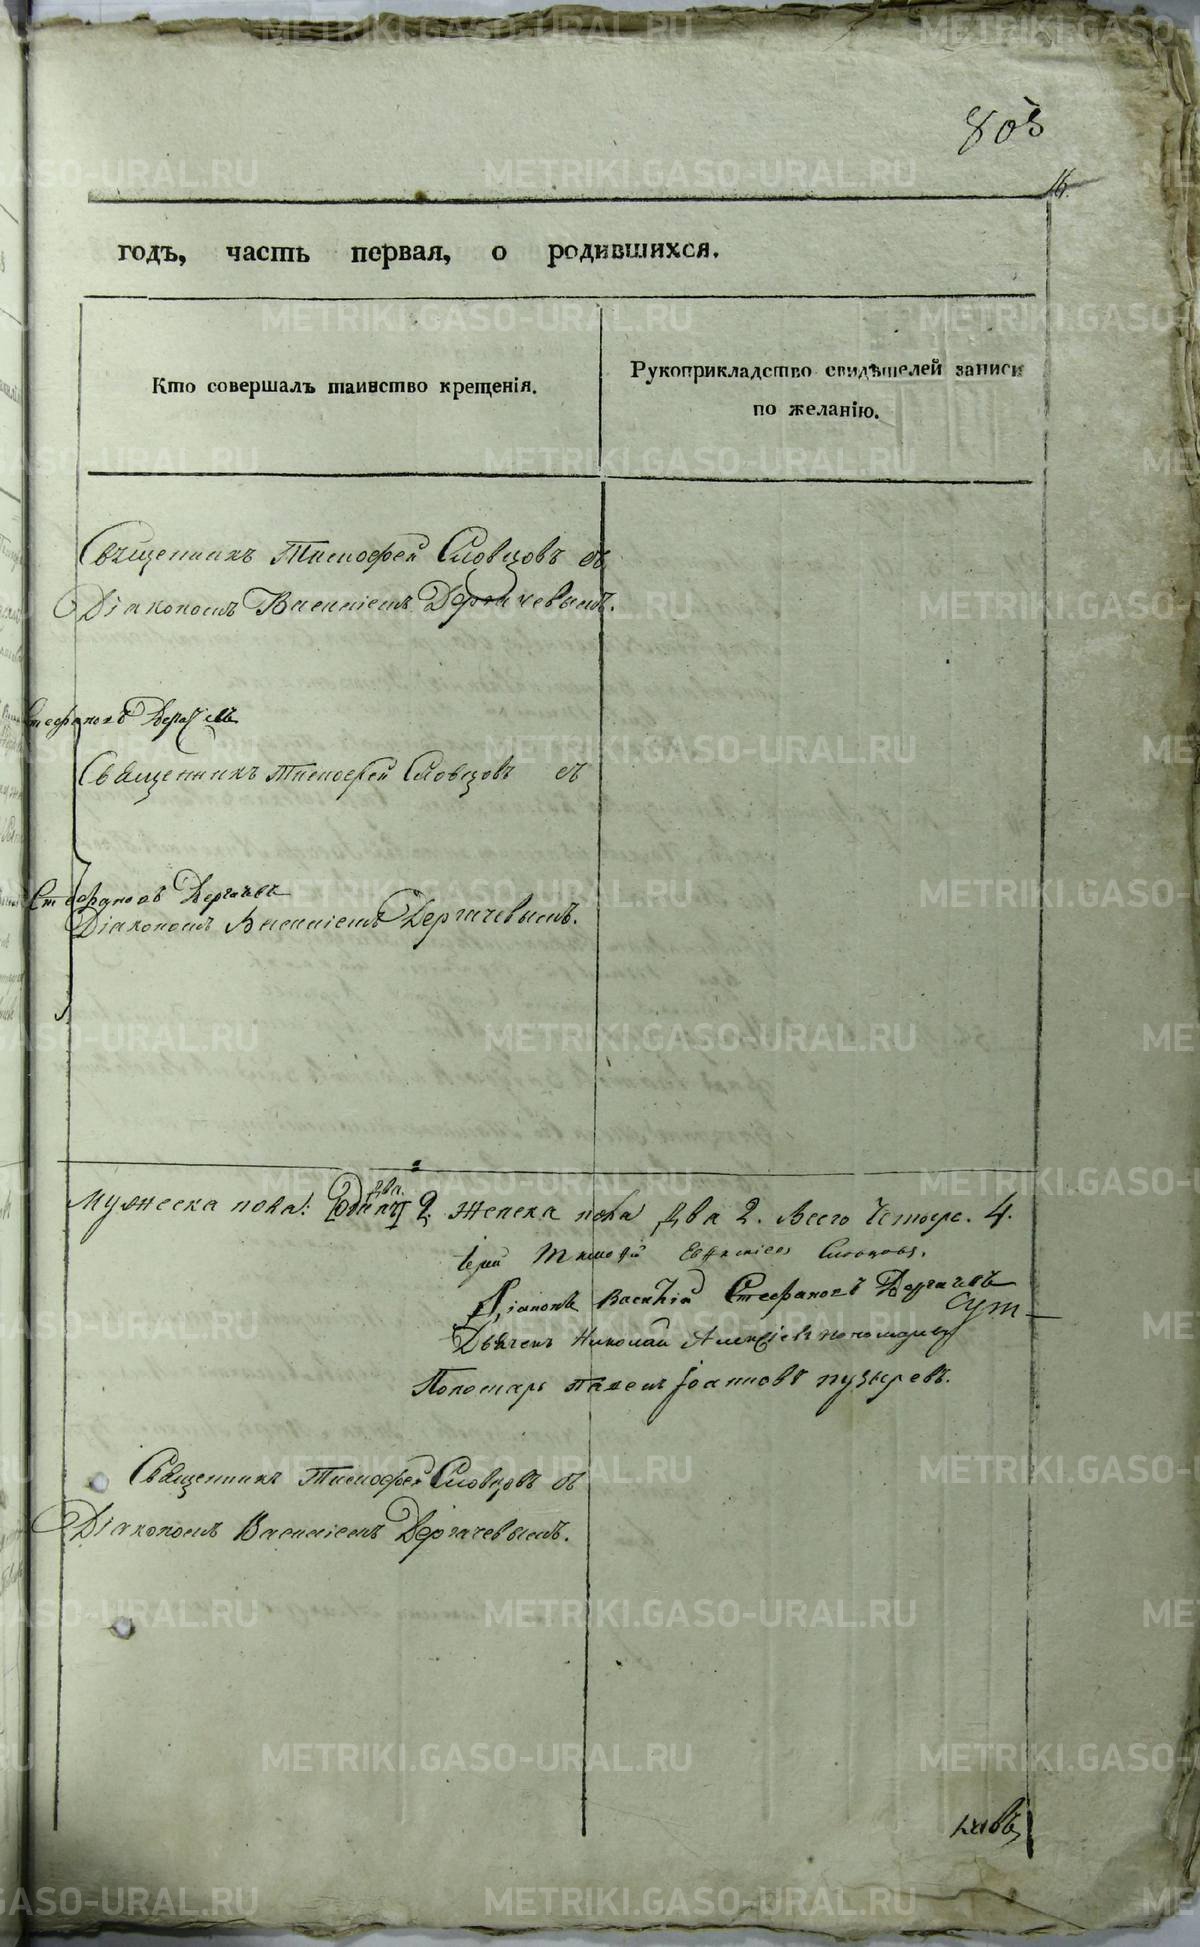 803
16.
годъ, часть первая, о родившихся.
Кто совершалъ таинство крещенія.
Рукоприкладство свидѣтелей записи
по желанію.
Священникъ Тимофей Словцовъ съ
Діакономъ Василіемъ Дергачевымъ.
Стефановъ Дергачевъ
Священникъ Тимофей Словцовъ съ
Стефановъ Дергачевъ
Діакономъ Василіемъ Дергачевымъ.
два.
Мужеска пола: Одинъ 2. Женска пола два 2. Всего Четыре. 4.
Іерей Тимофей Словцовъ.
Діаконъ Василій Стефановъ Дергачевъ
Дьячекъ Николай Алексіевъ
Пономарь Павелъ Іоанновъ Пузыревъ.
Священникъ Тимофей Словцовъ съ
Діакономъ Василіемъ Дергачевымъ.
METRIKI.GASO-URAL.RU